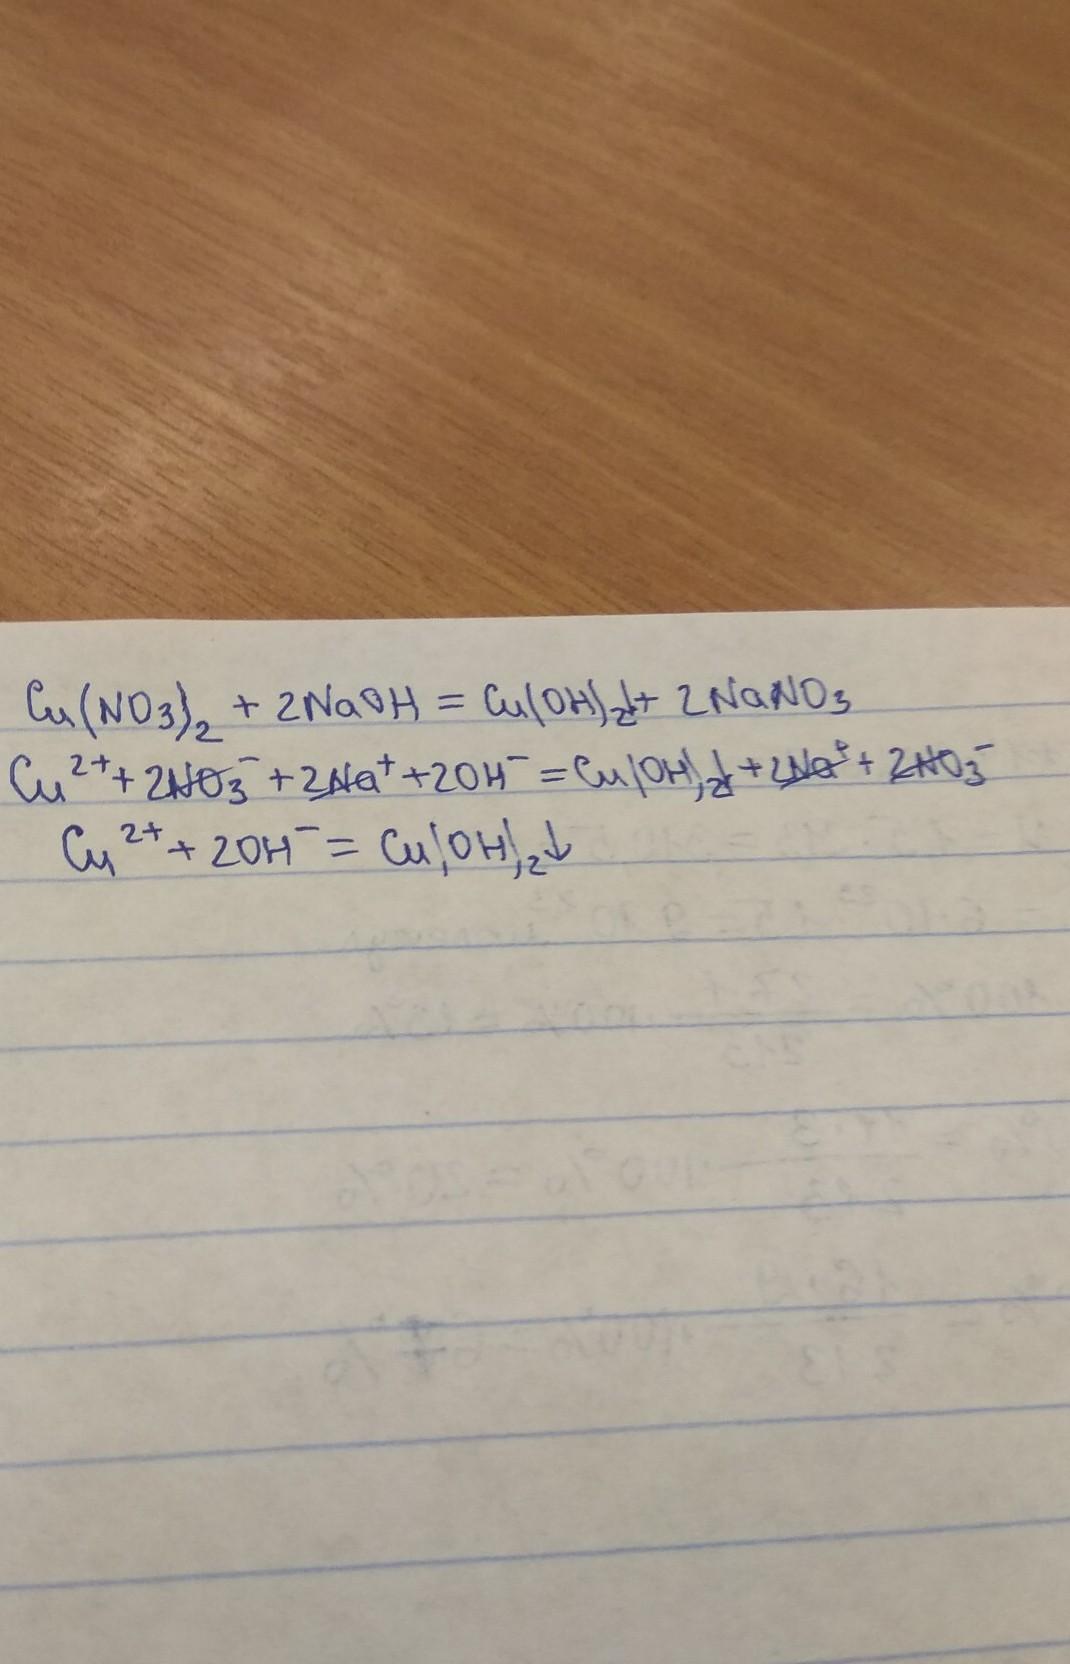 Cu(NO3)2 + 2NaOH = Cu(OH)2↓ + 2NaNO3
Cu²⁺ + 2NO3⁻ + 2Na⁺ + 2OH⁻ = Cu(OH)2↓ + 2Na⁺ + 2NO3⁻
Cu²⁺ + 2OH⁻ = Cu(OH)2↓